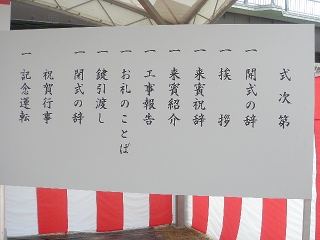 式次第
一 開式の辞
一 挨拶
一 来賓祝辞
一 来賓紹介
一 工事報告
一 お礼のことば
一 鍵引渡し
一 閉式の辞
祝賀行事
一 記念運転